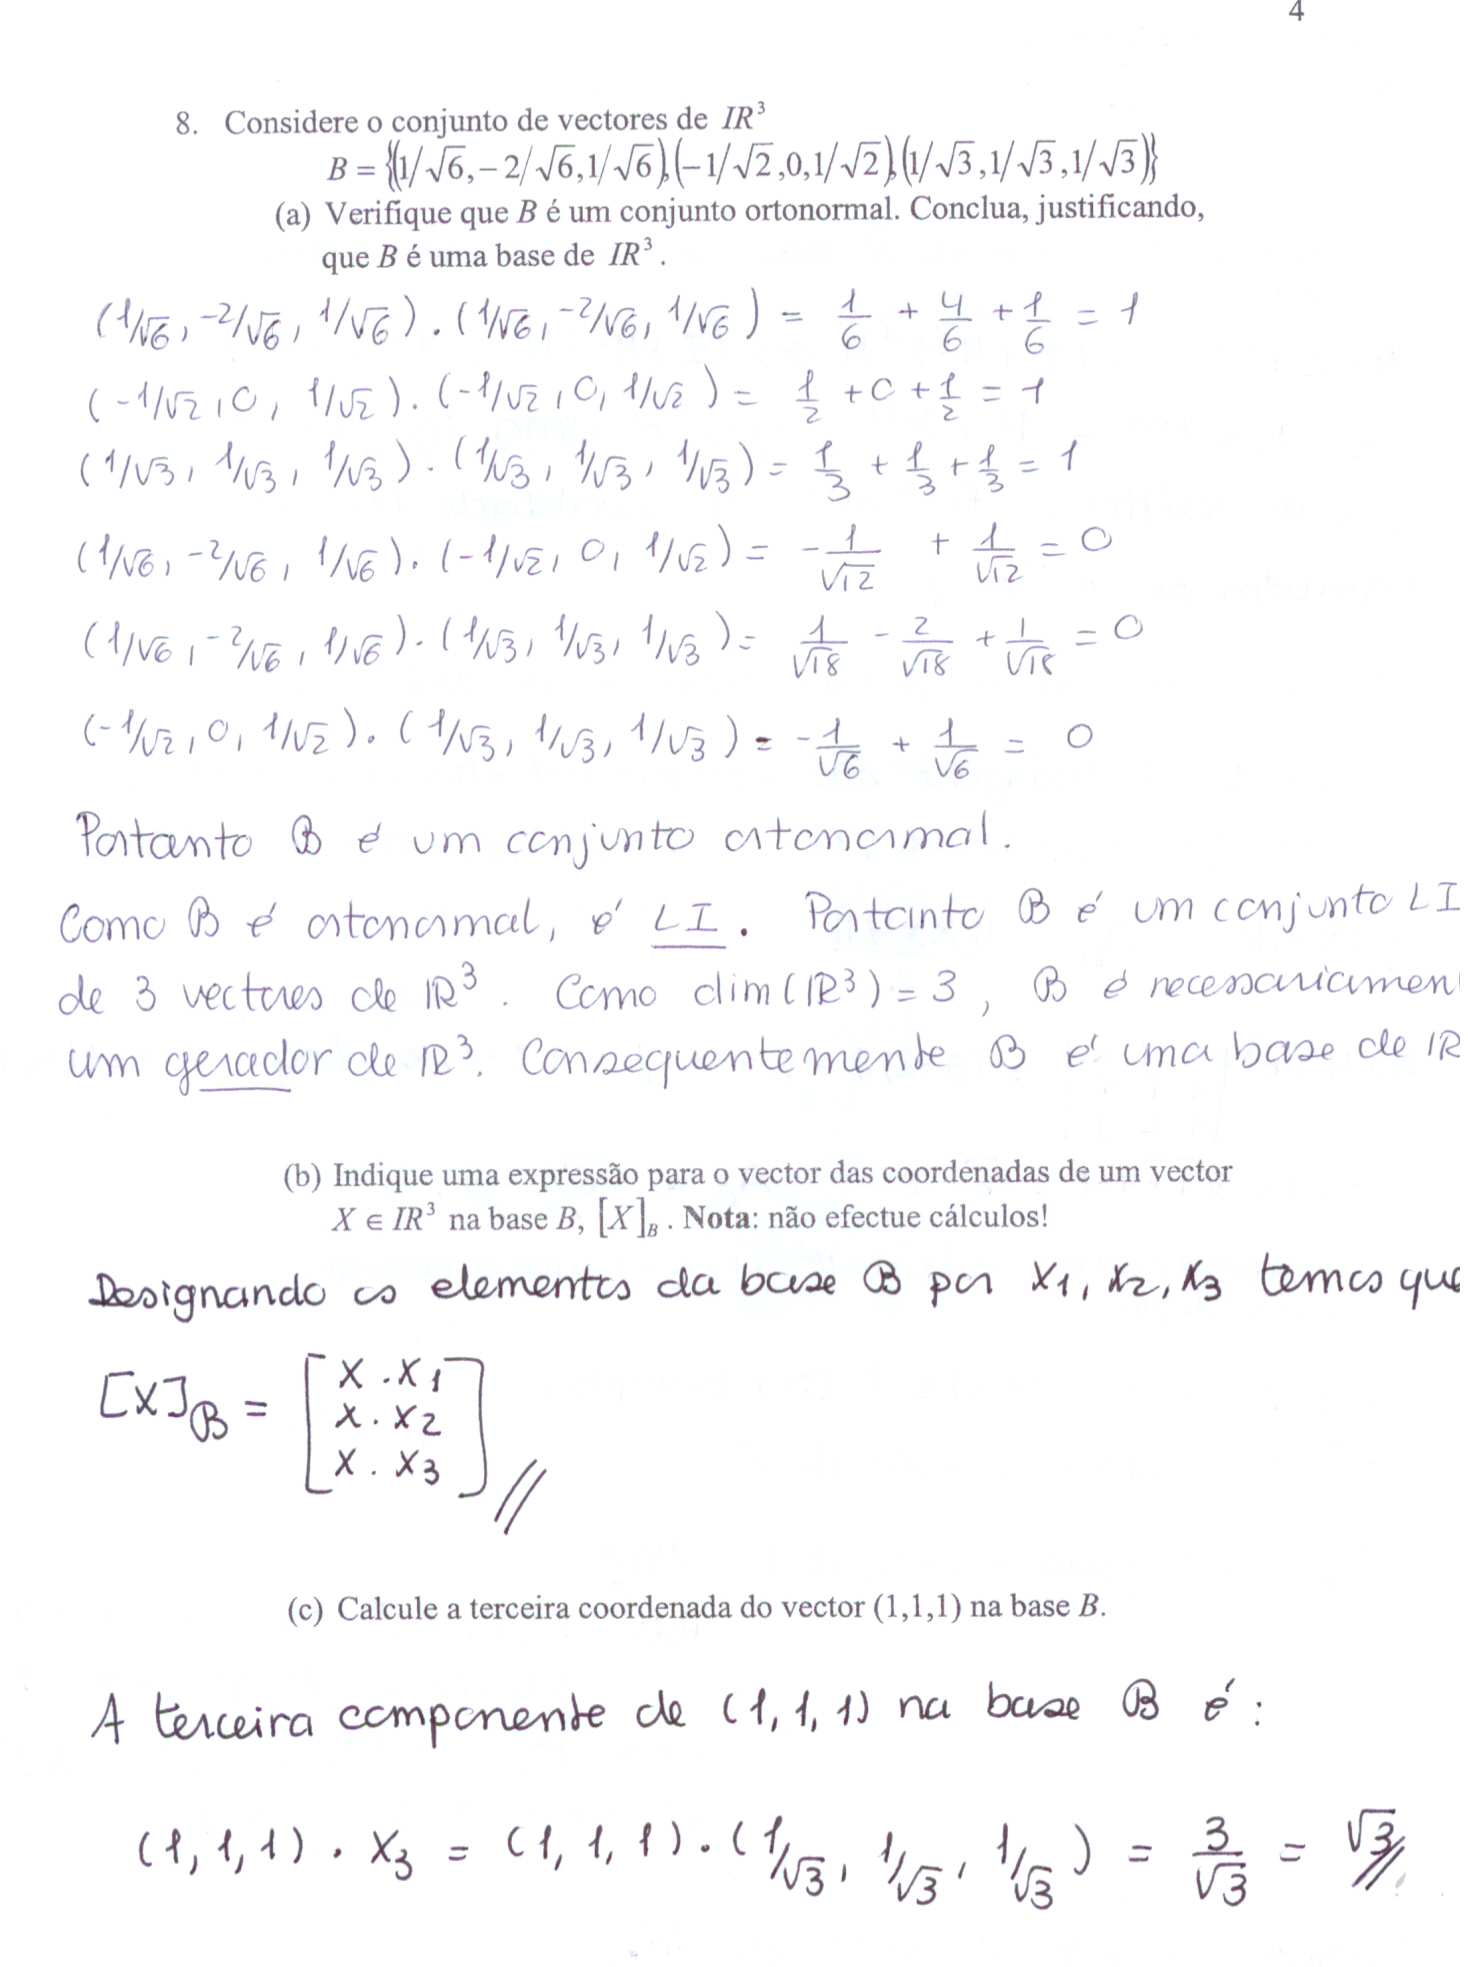 4
8. Considere o conjunto de vectores de IR³
B = {(1/√6, −2/√6, 1/√6), (−1/√2, 0, 1/√2), (1/√3, 1/√3, 1/√3)}
(a) Verifique que B é um conjunto ortonormal. Conclua, justificando,
que B é uma base de IR³.
(1/√6, -2/√6, 1/√6) . (1/√6, -2/√6, 1/√6) = 1/6 + 4/6 + 1/6 = 1
(-1/√2, 0, 1/√2) . (-1/√2, 0, 1/√2) = 1/2 + 0 + 1/2 = 1
(1/√3, 1/√3, 1/√3) . (1/√3, 1/√3, 1/√3) = 1/3 + 1/3 + 1/3 = 1
(1/√6, -2/√6, 1/√6) . (-1/√2, 0, 1/√2) = -1/√12 + 1/√12 = 0
(1/√6, -2/√6, 1/√6) . (1/√3, 1/√3, 1/√3) = 1/√18 - 2/√18 + 1/√18 = 0
(-1/√2, 0, 1/√2) . (1/√3, 1/√3, 1/√3) = -1/√6 + 1/√6 = 0
Portanto B é um conjunto ortonormal.
Como B é ortonormal, é LI. Portanto B é um conjunto LI
de 3 vectores de IR³. Como dim(IR³) = 3, B é necessariamen
um gerador de IR³. Consequentemente B é uma base de IR
(b) Indique uma expressão para o vector das coordenadas de um vector
X ∈ IR³ na base B, [X]_B. Nota: não efectue cálculos!
Designando os elementos da base B por X1, X2, X3 temos que
[X]_B = [X . X1
X . X2
X . X3]
(c) Calcule a terceira coordenada do vector (1,1,1) na base B.
A terceira componente de (1, 1, 1) na base B é:
(1, 1, 1) . X3 = (1, 1, 1) . (1/√3, 1/√3, 1/√3) = 3/√3 = √3